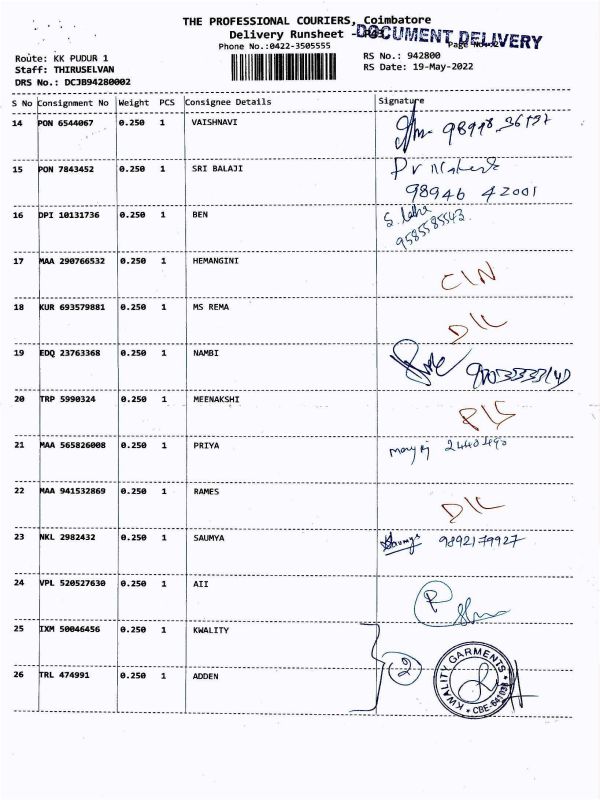 THE PROFESSIONAL COURIERS, Coimbatore
Delivery Runsheet -
DOCUMENT DELIVERY
Phone No.:0422-3505555
Route: KK PUDUR 1
RS No.: 942800
Staff: THIRUSELVAN
RS Date: 19-May-2022
DRS No.: DCJB94280002
S No Consignment No Weight PCS Consignee Details Signature
14 PON 6544067 0.250 1 VAISHNAVI
15 PON 7843452 0.250 1 SRI BALAJI
98946 42001
16 DPI 10131736 0.250 1 BEN
9585585543
17 MAA 290766532 0.250 1 HEMANGINI
18 KUR 693579881 0.250 1 MS REMA
D/L
19 EDQ 23763368 0.250 1 NAMBI
20 TRP 5990324 0.250 1 MEENAKSHI
21 MAA 565826008 0.250 1 PRIYA
22 MAA 941532869 0.250 1 RAMES
D/L
23 NKL 2982432 0.250 1 SAUMYA Saumya 9892179927
24 VPL 520527630 0.250 1 AII
25 IXM 50046456 0.250 1 KWALITY
2
26 TRL 474991 0.250 1 ADDEN
KWALITY GARMENTS